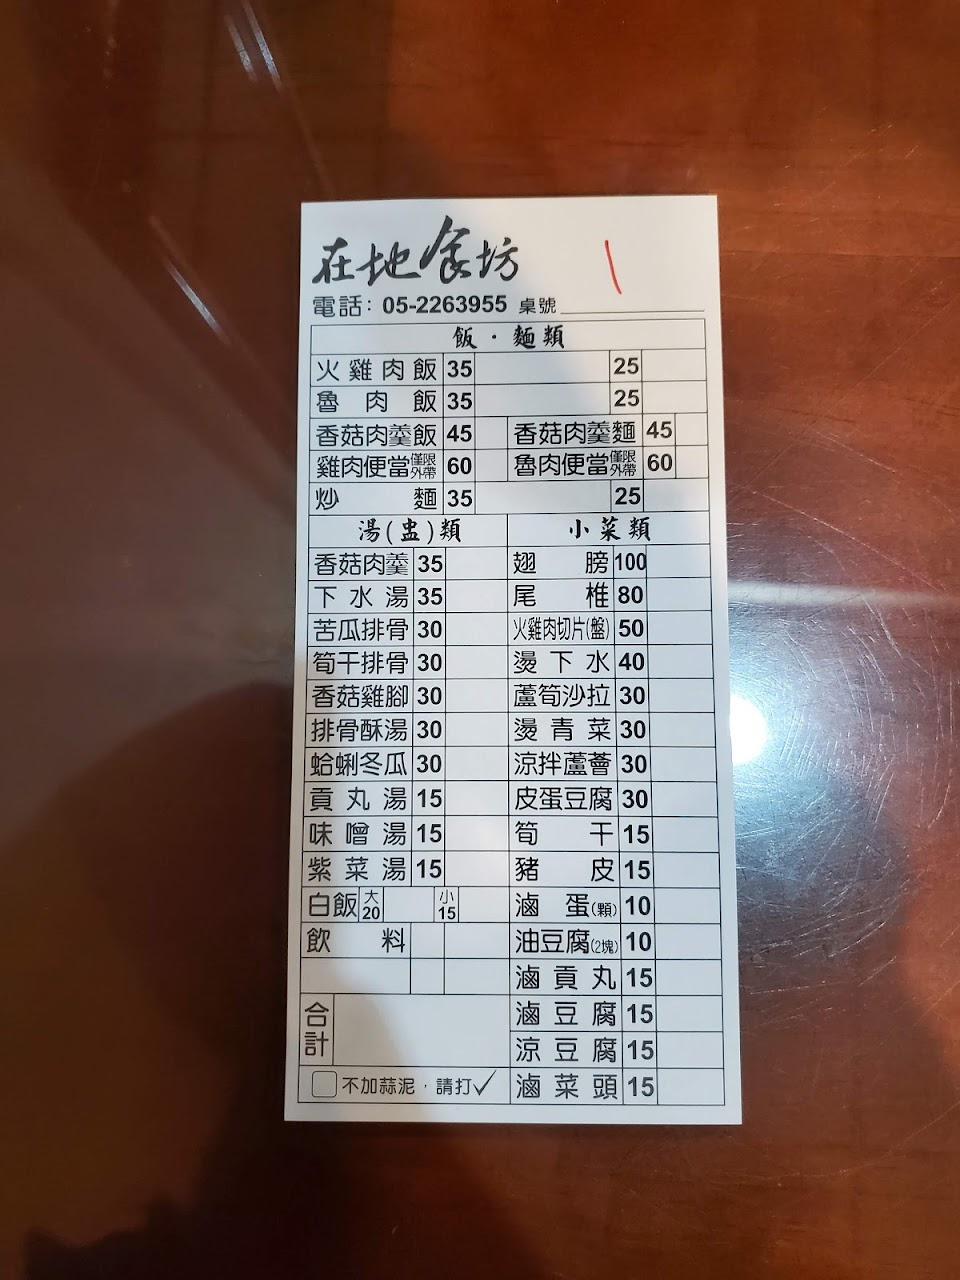 在地食坊
電話：05-2263955 桌號
飯·麵類
火雞肉飯 35 25
魯肉飯 35 25
香菇肉羹飯 45 香菇肉羹麵 45
雞肉便當僅限外帶 60 魯肉便當僅限外帶 60
炒麵 35 25
湯(盅)類 小菜類
香菇肉羹 35 翅膀 100
下水湯 35 尾椎 80
苦瓜排骨 30 火雞肉切片(盤) 50
筍干排骨 30 燙下水 40
香菇雞腳 30 蘆筍沙拉 30
排骨酥湯 30 燙青菜 30
蛤蜊冬瓜 30 涼拌蘆薈 30
貢丸湯 15 皮蛋豆腐 30
味噌湯 15 筍干 15
紫菜湯 15 豬皮 15
白飯 大20 小15 滷蛋(顆) 10
飲料 油豆腐(2塊) 10
滷貢丸 15
合計 滷豆腐 15
涼豆腐 15
不加蒜泥，請打✓ 滷菜頭 15